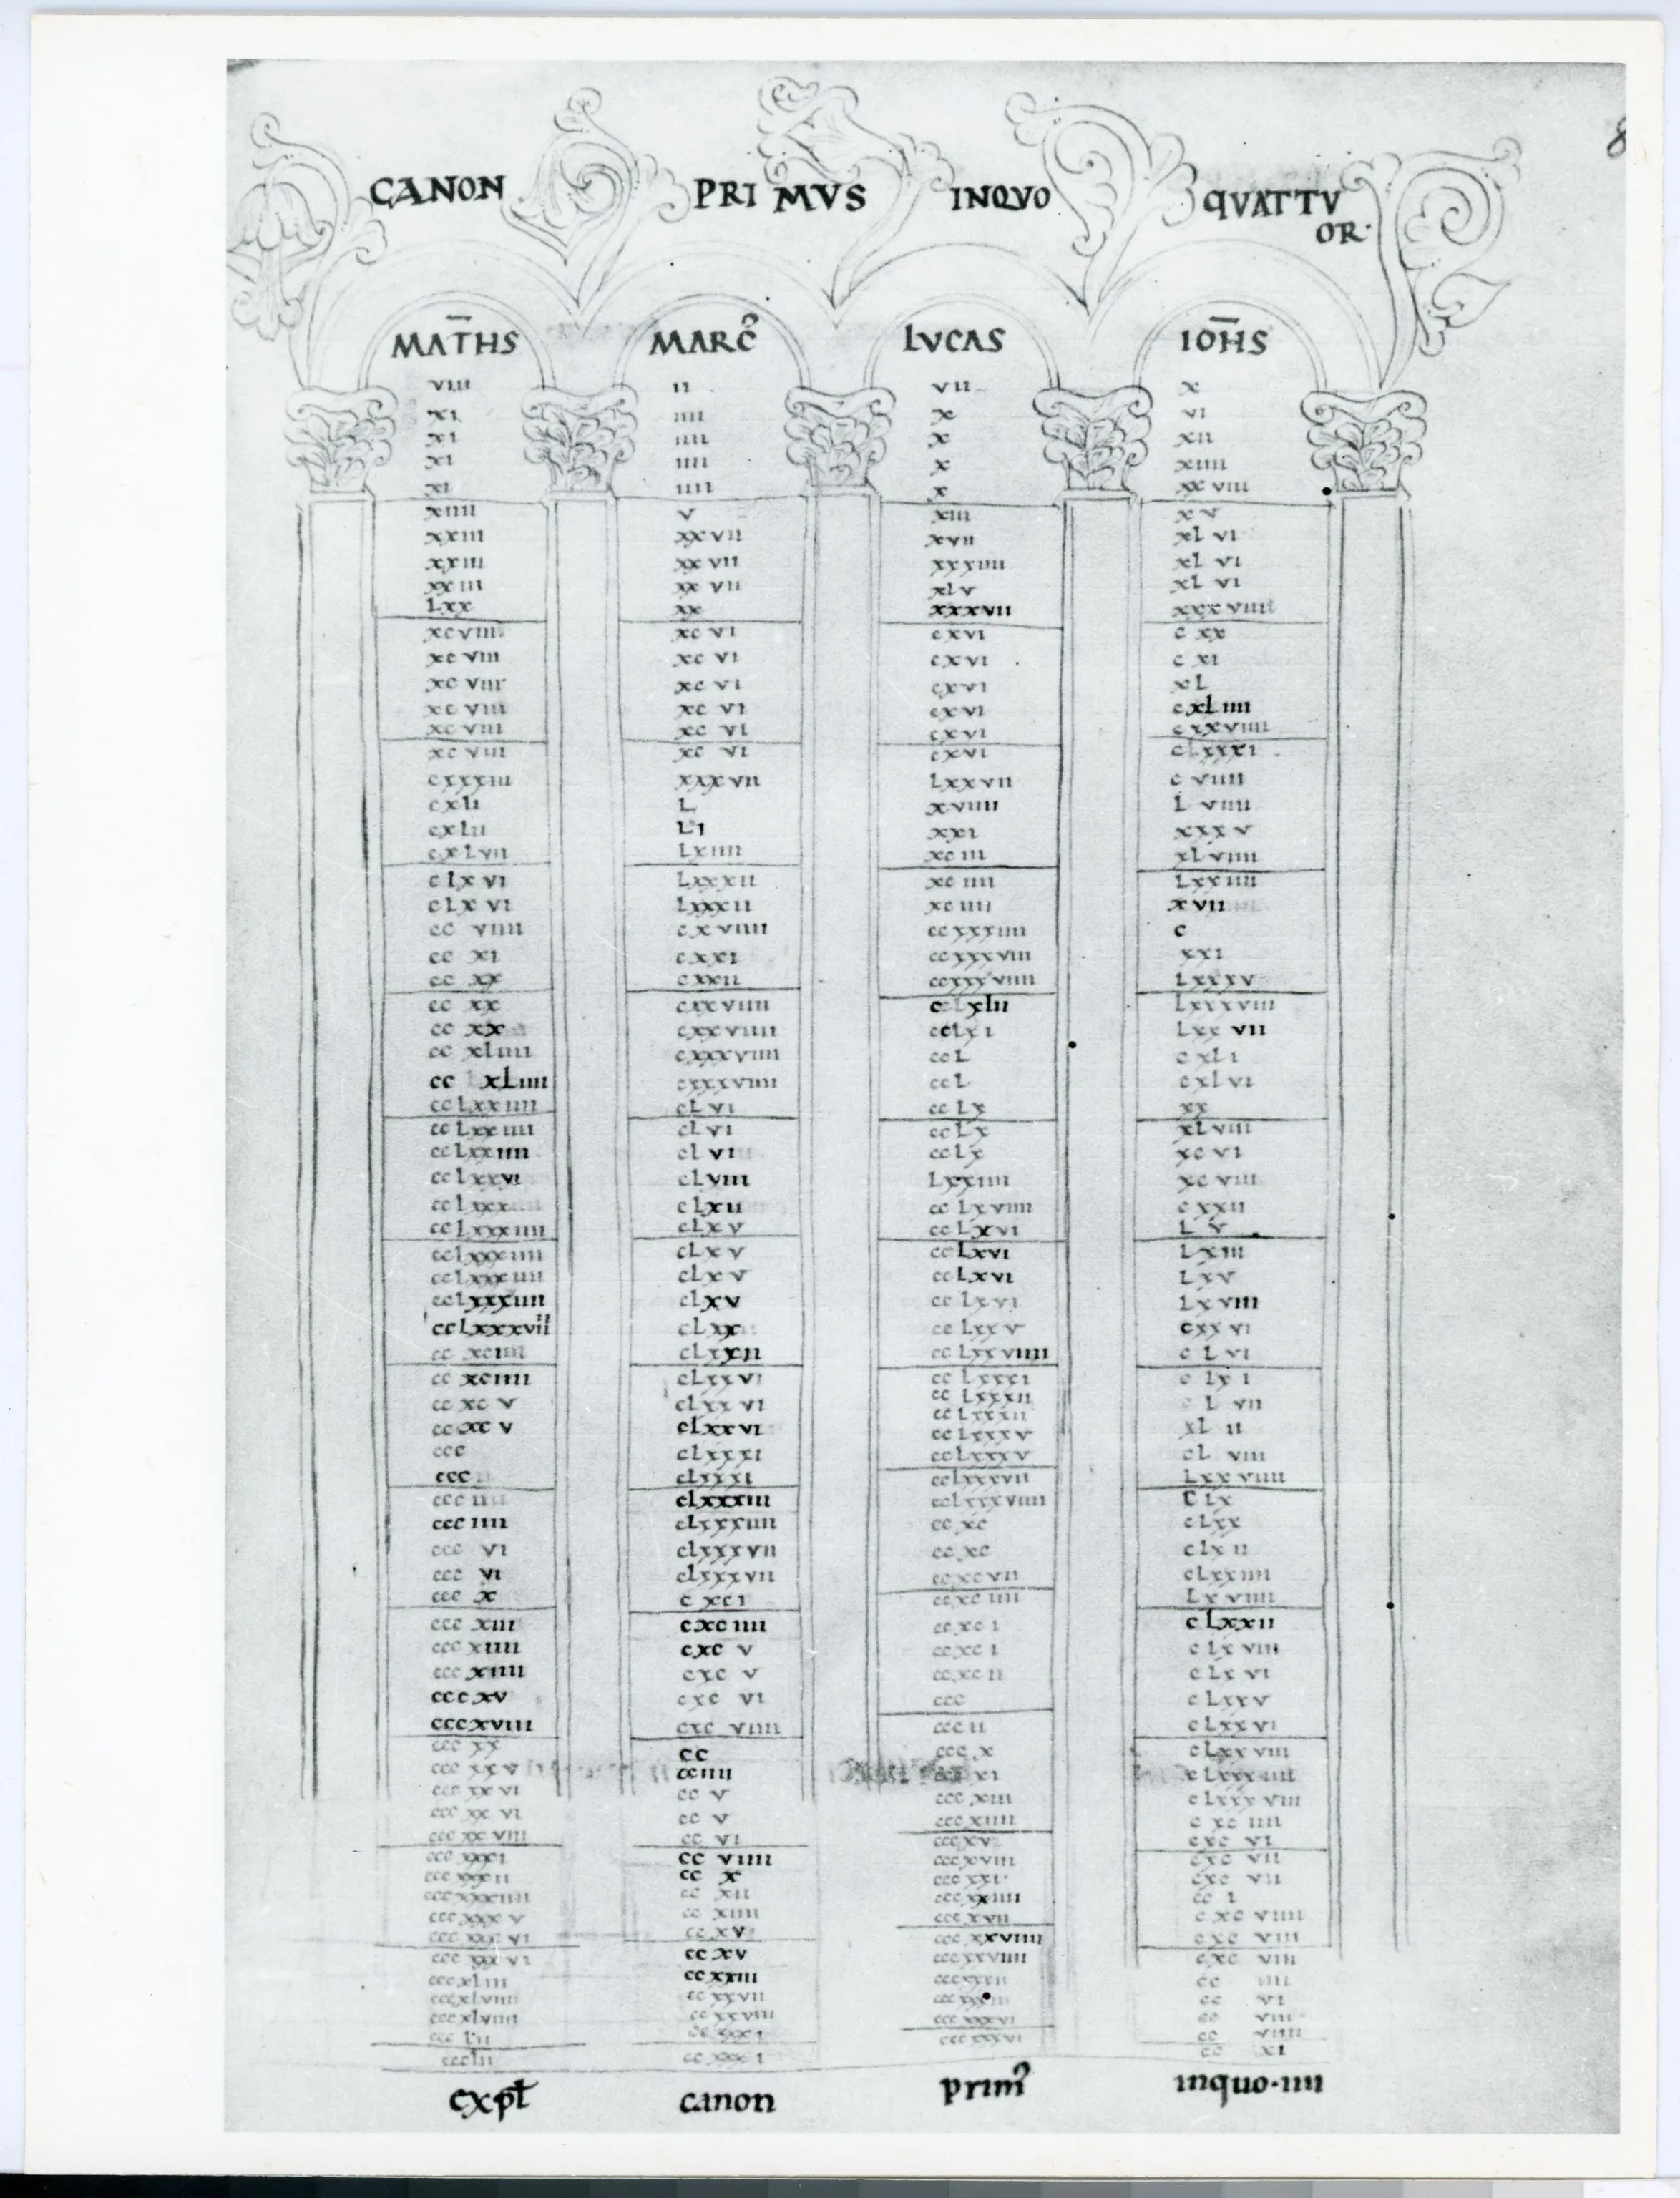 CANON PRIMVS INQVO QVATTV
OR·
MAT̄HS MARC̉ LVCAS IOH̄S
viiii ii vii x
xi iiii x vi
xi iiii x xii
xi iiii x xiiii
xi iiii x xxviii
xiiii v xiii xv
xxiii xxvii xvii xlvi
xxiii xxvii xxxiiii xlvi
xxiii xxvii xlv xlvi
Lxx xx xxxvii xxxviiii
xcviii xcvi cxvi cxx
xcviii xcvi cxvi cxi
xcviii xcvi cxvi xL
xcviii xcvi cxvi cxLiiii
xcviii xcvi cxvi cxxviiii
xcviii xcvi cxvi clxxxi
cxxxiii xxxvii Lxxvii cviiii
cxli L xviiii Lviiii
cxlii Li xxi xxxv
cxLvii Lxiiii xciii xLviiii
cLxvi Lxxxii xciiii Lxxiiii
cLxvi Lxxxii xciiii xvii
ccviiii cxviiii ccxxxiiii c
ccxi cxxi ccxxxviii xxi
ccxx cxxii ccxxxviiii Lxxxv
ccxx cxxviiii ccxlii Lxxxviii
ccxx cxxviiii ccLxi Lxxvii
ccxliiii cxxxviiii ccL cxli
ccLxLiiii cxxxviiii ccL cxlvi
ccLxxiiii cLvi ccLx xx
ccLxxiiii cLvi ccLx xLviii
ccLxxiiii cLvi ccLx xcvi
ccLxxvi cLviii Lxxiiii xcviii
ccLxxx cLxii ccLxviiii cxxii
ccLxxxiiii cLxv ccLxvi Lv
ccLxxxiiii cLxv ccLxvi Lxiii
ccLxxxiiii cLxv ccLxvi Lxv
ccLxxxiiii cLxv ccLxvi Lxviii
ccLxxxvii cLxx ccLxxv cxxvi
ccxciiii cLxxii ccLxxviiii cLvi
ccxciiii cLxxvi ccLxxxi cLxi
ccxcv cLxxvi ccLxxxii cLvii
ccxcv cLxxvi ccLxxxii xLii
ccc cLxxxi ccLxxxv cLviii
ccc cLxxxi ccLxxxv Lxxviiii
ccciiii cLxxxiii ccLxxxvii cLx
ccciiii cLxxxiiii ccLxxxviiii cLxx
cccvi cLxxxvii ccxc cLxii
cccvi cLxxxvii ccxc cLxxiiii
cccx cxci ccxcvii Lxviiii
cccxiii cxciiii ccxciiii cLxxii
cccxiiii cxcv ccxci cLxviii
cccxiiii cxcv ccxci cLxvi
cccxv cxcvi ccxcii cLxxv
cccxviii cxcviiii ccc cLxxvi
cccxx cc cccii cLxxviii
cccxxv cciiii cccx cLxxxiiii
cccxxvi ccv cccxi cLxxxviii
cccxxvi ccv cccxiii cxciiii
cccxxviii ccvi cccxiiii cxcvi
cccxxxi ccviiii cccxv cxcvii
cccxxxii ccx cccxviii cxcvii
cccxxxiiii ccxii cccxxi cci
cccxxxv ccxiiii cccxxiiii cxcviiii
cccxxxvi ccxv cccxvii cxcviii
cccxxxvi ccxv cccxxviiii cxcviii
cccxliii ccxxiii cccxxviiii cciiii
cccxlviii ccxxvii cccxxxii ccvi
cccxlviiii ccxxviiii ccviii
cccLii ccxxxi cccxxxvi ccviiii
cccLii ccxxxi cccxxxvi ccxi
expł canon prim̉ inquo·iiii